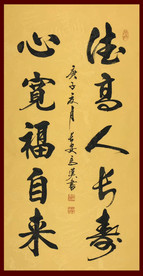 德高人长寿
心宽福自来
庚子夏月